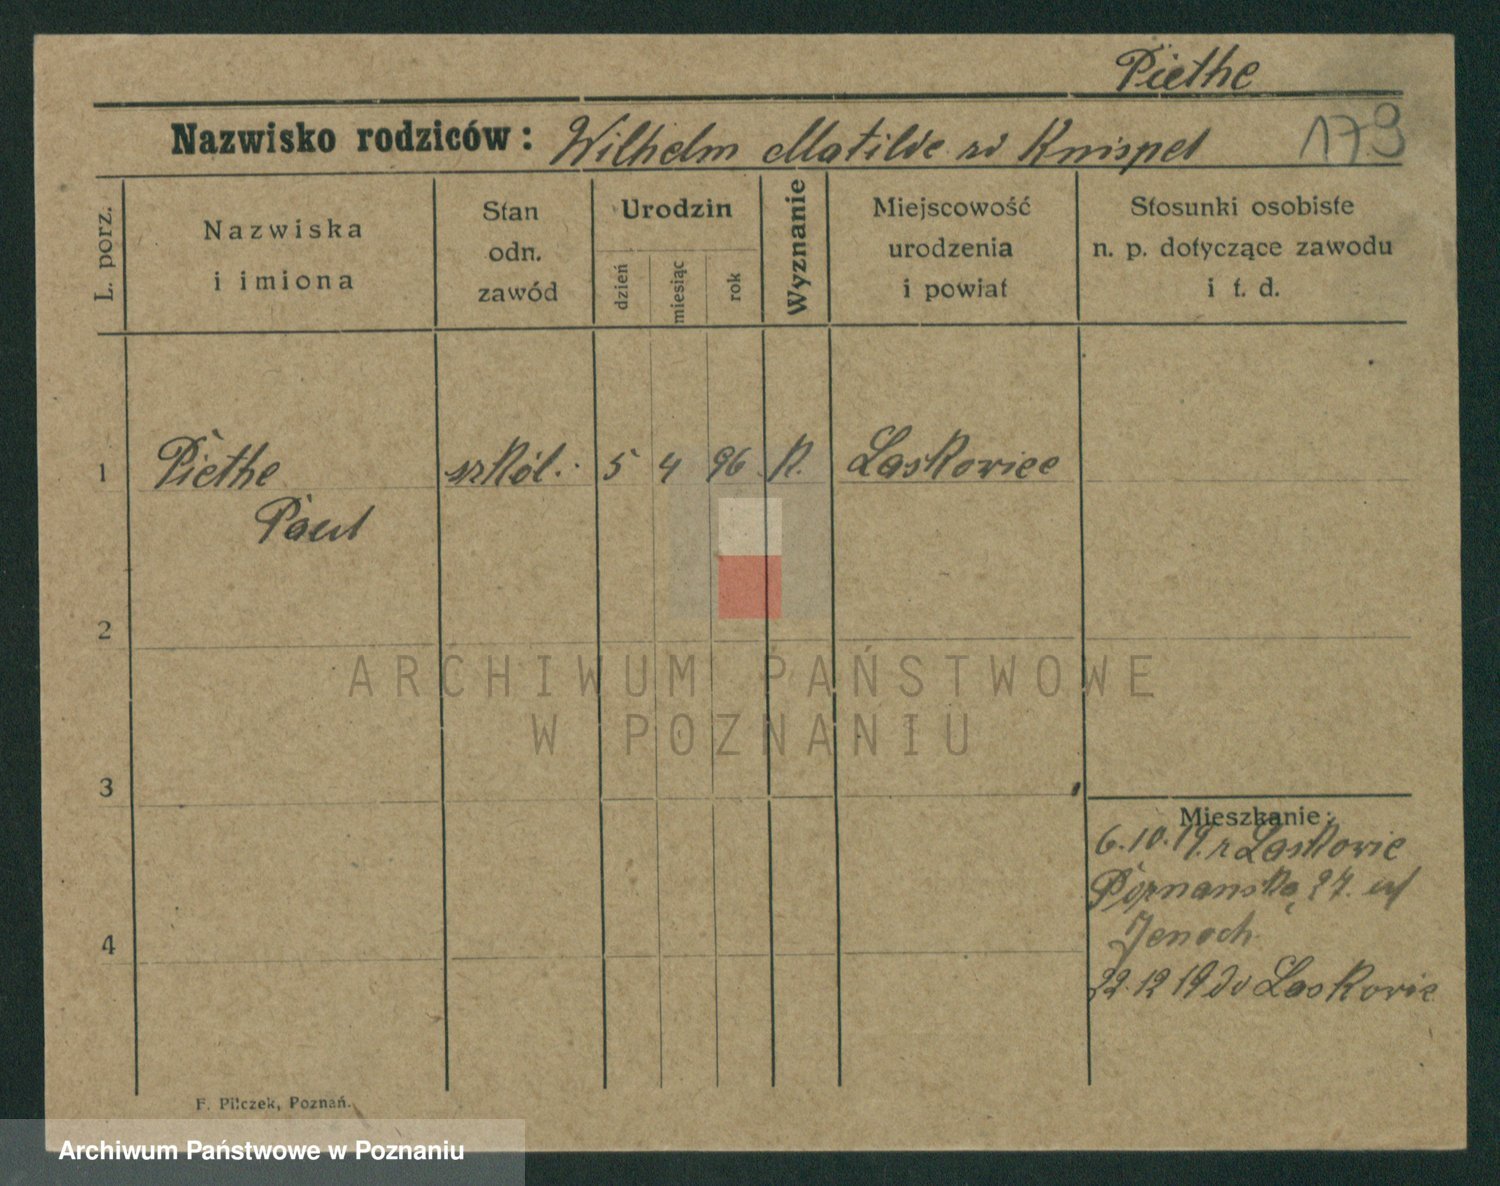 Piethe
Nazwisko rodziców: Wilhelm Matilde zd Knispel 179
L. porz.
Nazwiska
i imiona
Stan
odn.
zawód
Urodzin
dzień
miesiąc
rok
Wyznanie
Miejscowość
urodzenia
i powiat
Stosunki osobiste
n. p. dotyczące zawodu
i t. d.
1 Piethe szkól. 5 4 96 K. Laskowice
Paul
2
3
4
Mieszkanie:
6.10.19. z Laskowic
Poznanska 27. ul
Jenoch
22.12 19 do Laskowic
F. Pilczek, Poznań.
ARCHIWUM PAŃSTWOWE
W POZNANIU
Archiwum Państwowe w Poznaniu